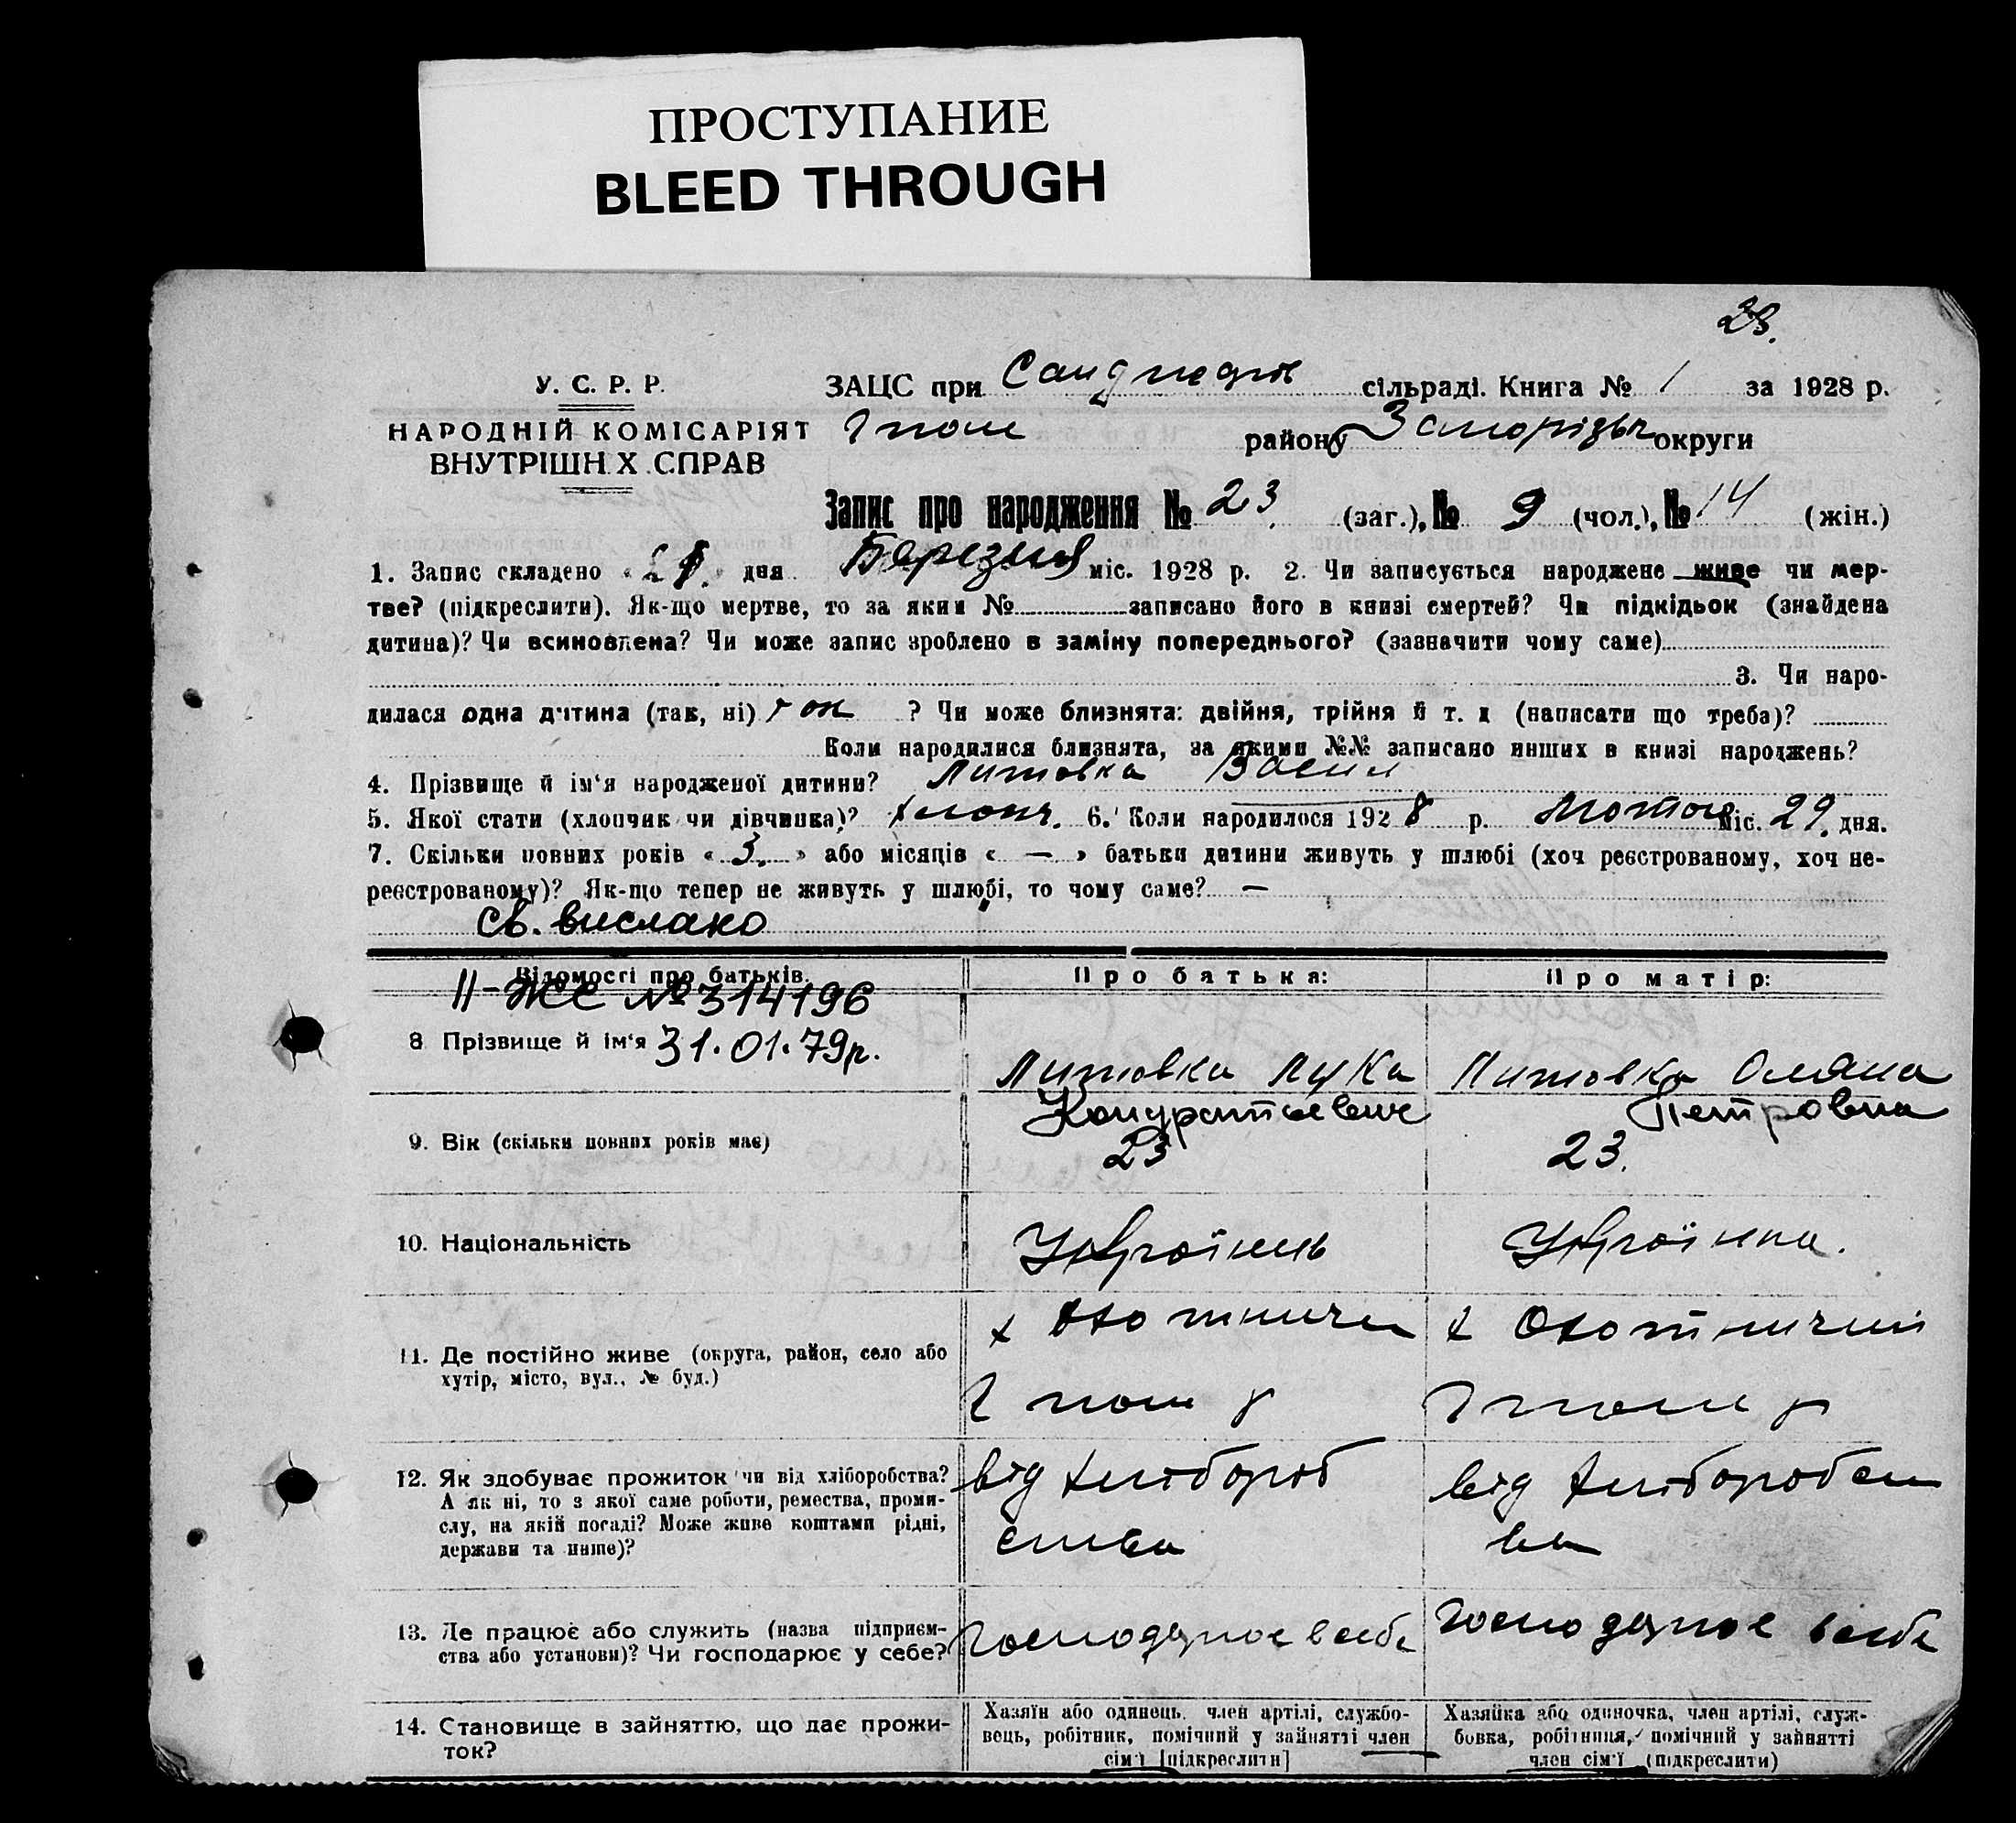 ПРОСТУПАНИЕ
BLEED THROUGH
23.
У. С. Р. Р.
НАРОДНІЙ КОМІСАРІЯТ
ВНУТРІШН Х СПРАВ
ЗАЦС при сільраді. Книга № 1 за 1928 р.
району Запорізьк округи
Запис про народження № 23 (заг.), № 9 (чол.), № 14 (жін.)
1. Запис складено « » дня Березня міс. 1928 р. 2. Чи записується народжене живе чи мер-
тве? (підкреслити). Як-що мертве, то за яким № записано його в книзі смертей? Чи підкідьок (знайдена
дитина)? Чи всиновлена? Чи може запис зроблено в заміну попереднього? (зазначити чому саме)
3. Чи наро-
дилася одна дитина (так, ні) так ? Чи може близнята: двійня, трійня й т. д (написати що треба)?
Коли народилися близнята, за якими №№ записано инших в книзі народжень?
4. Прізвище й ім‘я народженої дитини? Литовка Васил
5. Якої статі (хлопчик чи дівчинка)? хлопч. 6. Коли народилося 1928 р. Лютого міс. 29. дня.
7. Скільки повних років « 3. » або місяців « — » батьки дитини живуть у шлюбі (хоч реєстрованому, хоч не-
реєстрованому)? Як-що тепер не живуть у шлюбі, то чому саме? —
Св. вислано
Відомості про батьків.
Про батька:
Про матір:
II-ЖС №314196
8 Прізвище й ім‘я 31.01.79р.
Литовка Лука
Кондратьевич
Литовка Оляна
Петровна
9. Вік (скільки повних років має)
23
23.
10. Національність
Українець
Українка.
11. Де постійно живе (округа, район, село або
хутір, місто, вул., № буд.)
х Охотничи
х Охотничий
12. Як здобуває прожиток чи від хліборобства?
А як ні, то з якої саме роботи, ремества, проми-
слу, на якій посаді? Може живе коштами рідні,
держави та инше)?
від хлібороб
ства
від хліборобст
ва
13. Де працює або служить (назва підприєм-
ства або установи)? Чи господарює у себе?
господарює в себе
господарює в себе
14. Становище в зайняттю, що дає прожи-
ток?
Хазяїн або одинець. член артілі, службо-
вець, робітник, помічний у зайнятті член
сім‘ї [підкреслити]
Хазяйка або одиночка, член артілі, служ-
бовка, робітниця, помічний у зайнятті
член сім‘ї (підкреслити)